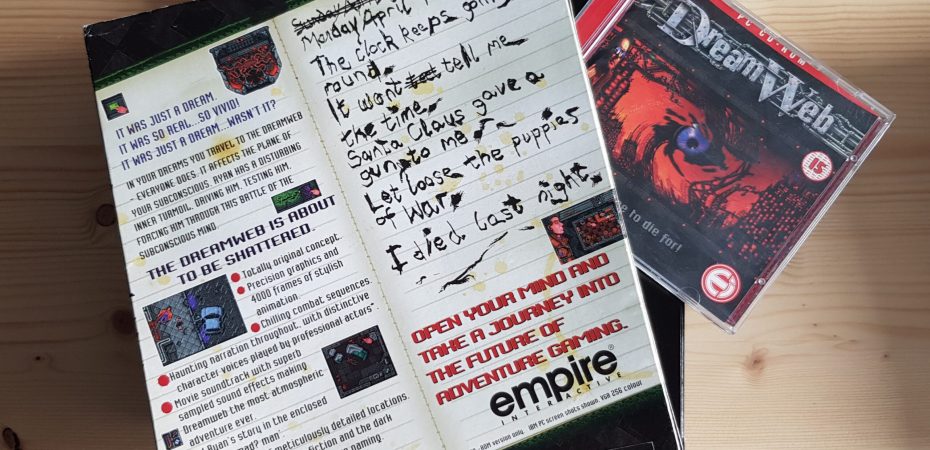 IT WAS JUST A DREAM
IT WAS SO REAL...SO VIVID!
IT WAS JUST A DREAM...WASN'T IT?
IN YOUR DREAMS YOU TRAVEL TO THE DREAMWEB
- EVERYONE DOES. IT AFFECTS THE PLANE OF
YOUR SUBCONSCIOUS. RYAN HAS A DISTURBING
INNER TURMOIL, DRIVING HIM, TESTING HIM,
FORCING HIM THROUGH THIS BATTLE OF THE
SUBCONSCIOUS MIND
THE DREAMWEB IS ABOUT
TO BE SHATTERED
Totally original concept.
Precision graphics and
4000 frames of stylish
animation.
Chilling combat sequences.
Haunting narration throughout, with distinctive
character voices played by professional actors
Movie soundtrack with superb
sampled sound effects making
Dreamweb the most atmospheric
adventure ever.
Ryan's story in the enclosed
mad? man
meticulously detailed locations.
fiction and the dark
Sunday
Monday April
The Clock Keeps going
round.
It want tell me
the time.
Santa Claus gave a
gun to me
Let loose the puppies
of War,
I died last night.
OPEN YOUR MIND AND
TAKE A JOURNEY INTO
THE FUTURE OF
ADVENTURE GAMING.
empire
INTERACTIVE
ROM version only. IBM PC screen shots shown. VGA 256 colour
PC CD-ROM
DreamWeb
15
e to die for!